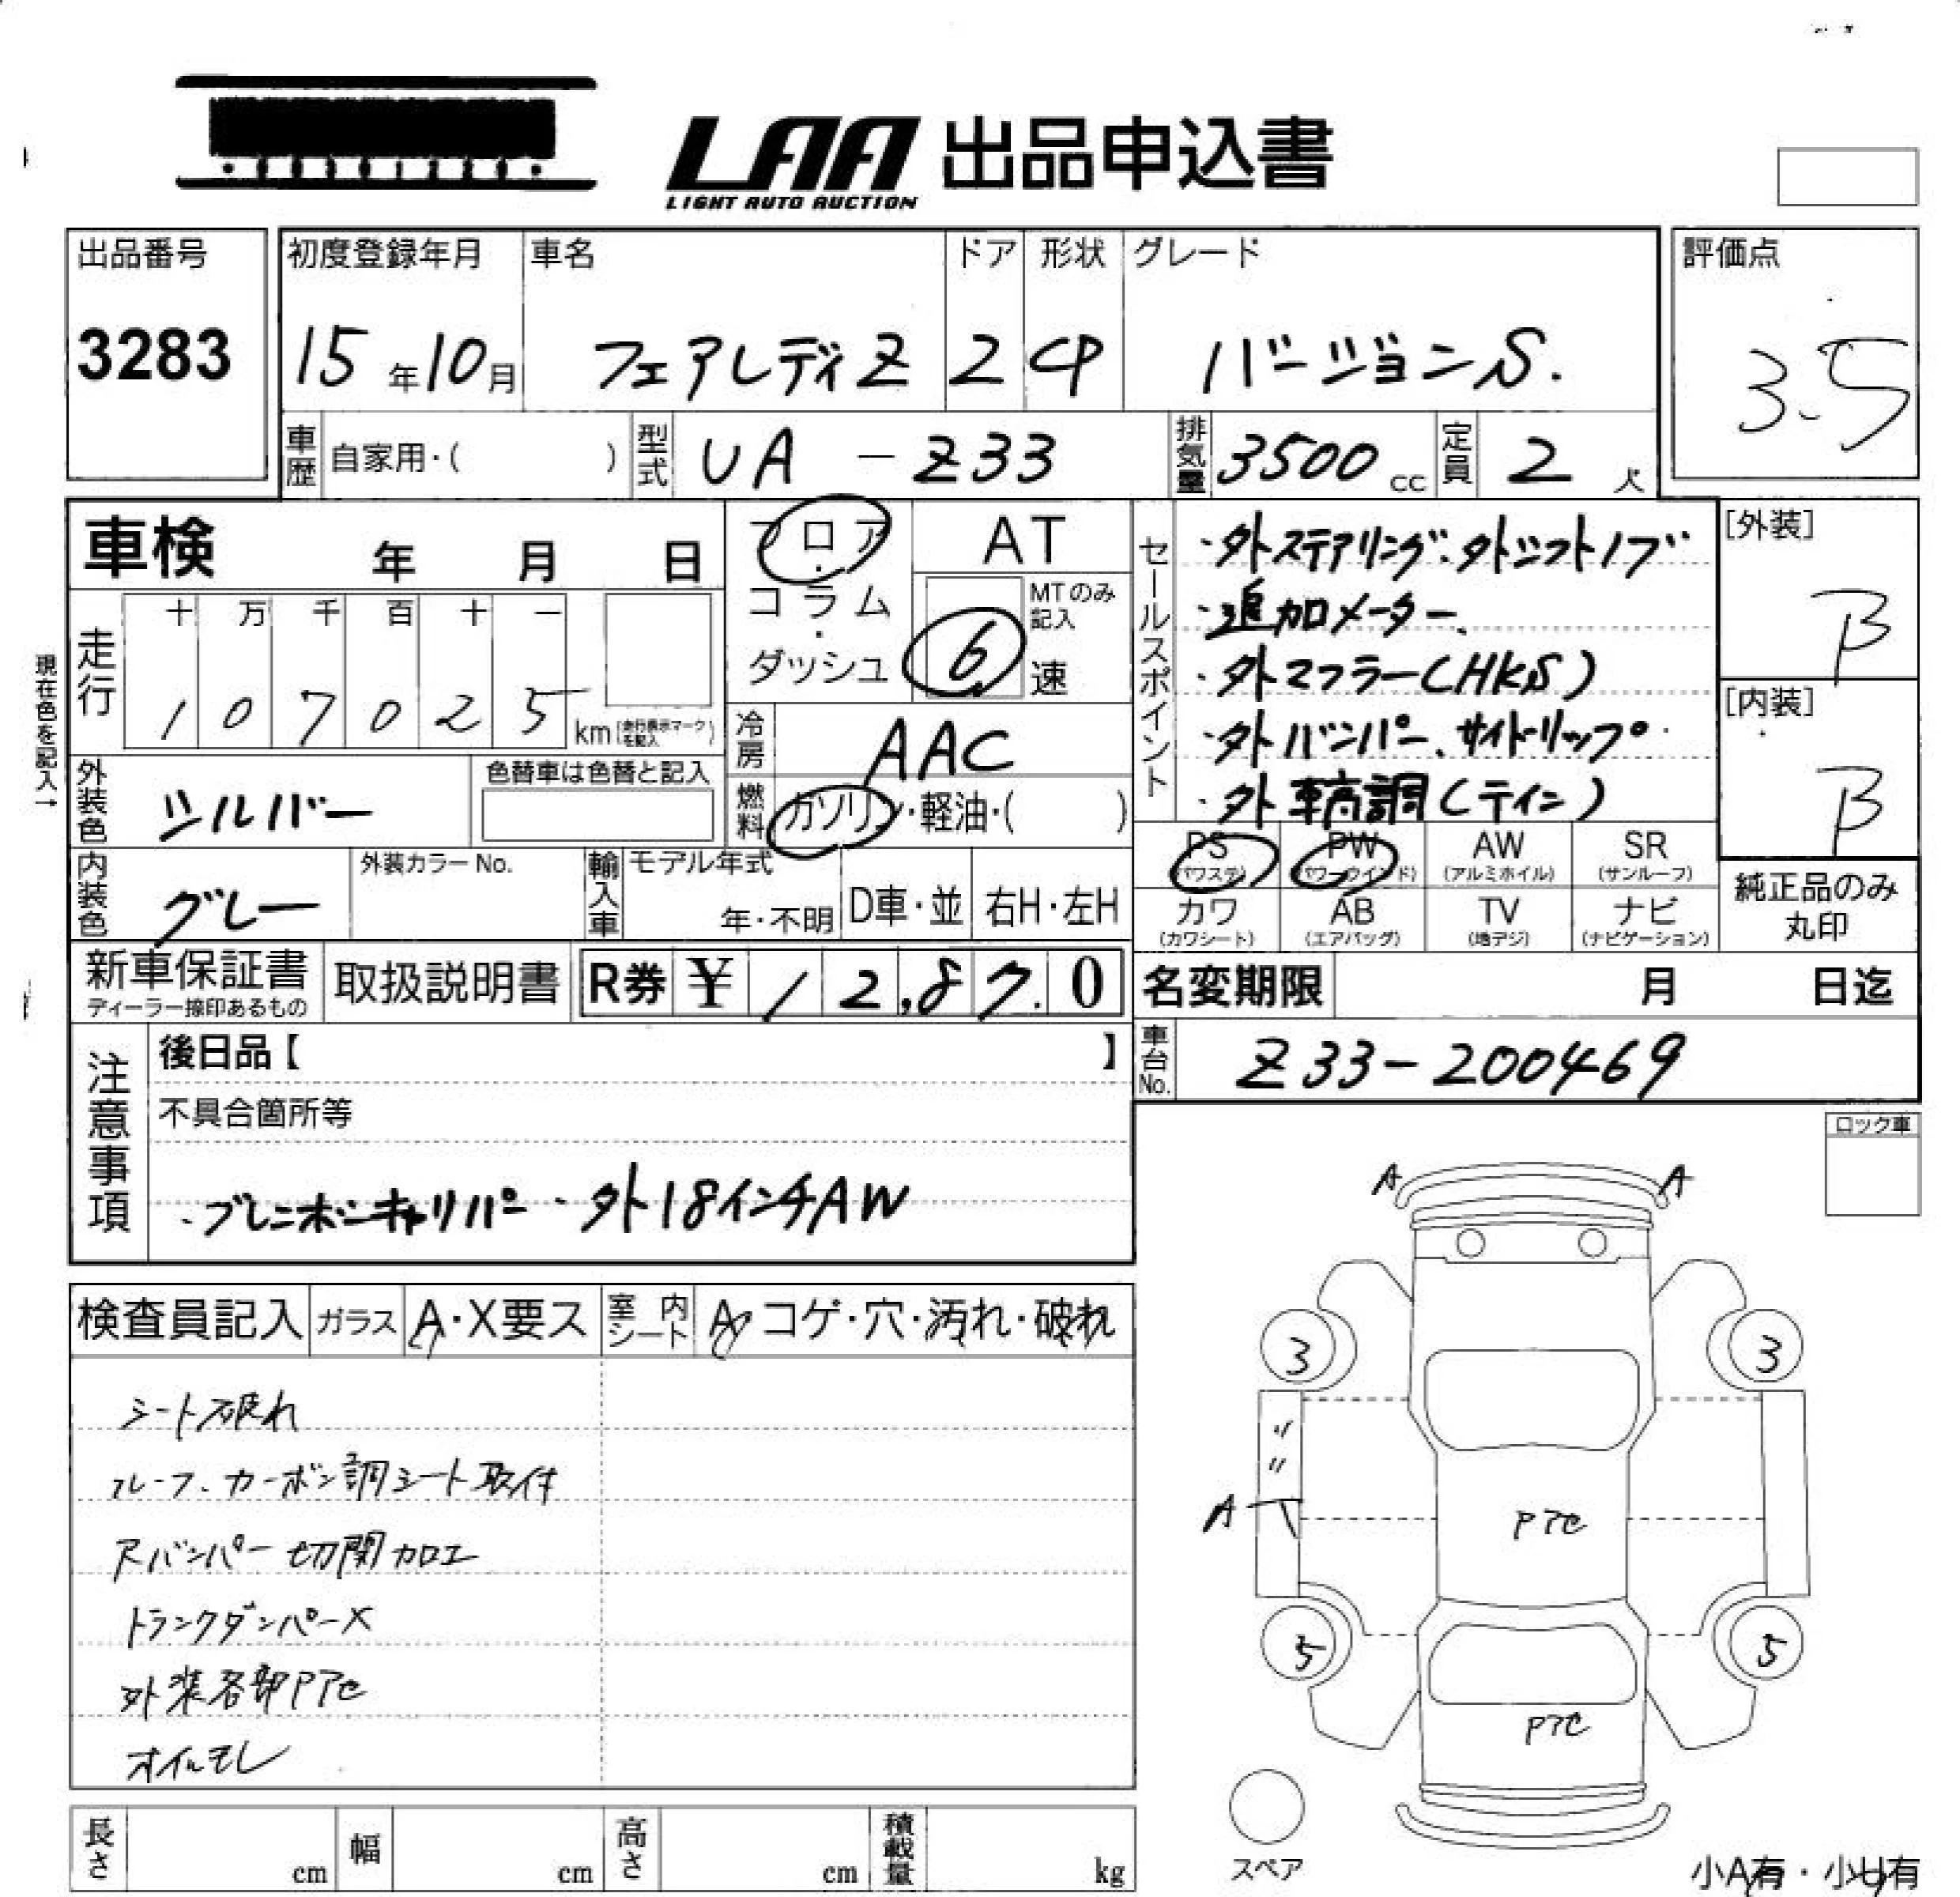 LAA 出品申込書
LIGHT AUTO AUCTION
出品番号
3283
初度登録年月 車名 ドア 形状 グレード
15年10月 フェアレディZ 2 CP バージョンS.
評価点
3.5
車歴 自家用・( ) 型式 UA-Z33 排気量 3500cc 定員 2人
車検 年 月 日
フロア・コラム・ダッシュ
AT
MTのみ記入
6速
走行
十 万 千 百 十 一
1 0 7 0 2 5 km (走行表示マークを記入)
現在色を記入→
外装色 シルバー
色替車は色替と記入
冷房 AAC
燃料 ガソリン・軽油・( )
内装色 グレー
外装カラーNo.
輸入車 モデル年式 年・不明 D車・並 右H・左H
セールスポイント
・外ステアリング・外シフトノブ
・追加メーター、
・外マフラー(HKS)
・外バンパー、サイドリップ
・外車高調(テイン)
[外装]
B
[内装]
B
PS (パワステ) PW (パワーウインド) AW (アルミホイル) SR (サンルーフ)
カワ (カワシート) AB (エアバッグ) TV (地デジ) ナビ (ナビゲーション)
純正品のみ丸印
新車保証書
ディーラー捺印あるもの
取扱説明書
R券 ¥12,870
名変期限 月 日迄
車台No. Z33-200469
注意事項
後日品【 】
不具合箇所等
・ブレンボキャリパー ・外18インチAW
ロック車
検査員記入 ガラス A・X要ス 室内シート A コゲ・穴・汚れ・破れ
シート破れ
ルーフ、カーボン調シート取付
Rバンパー切開加工
トランクダンパーX
外装各部PアC
オイルモレ
A A
3 3
〃
〃
A
PアC
5 5
PアC
スペア
長さ cm 幅 cm 高さ cm 積載量 kg
小A有・小U有